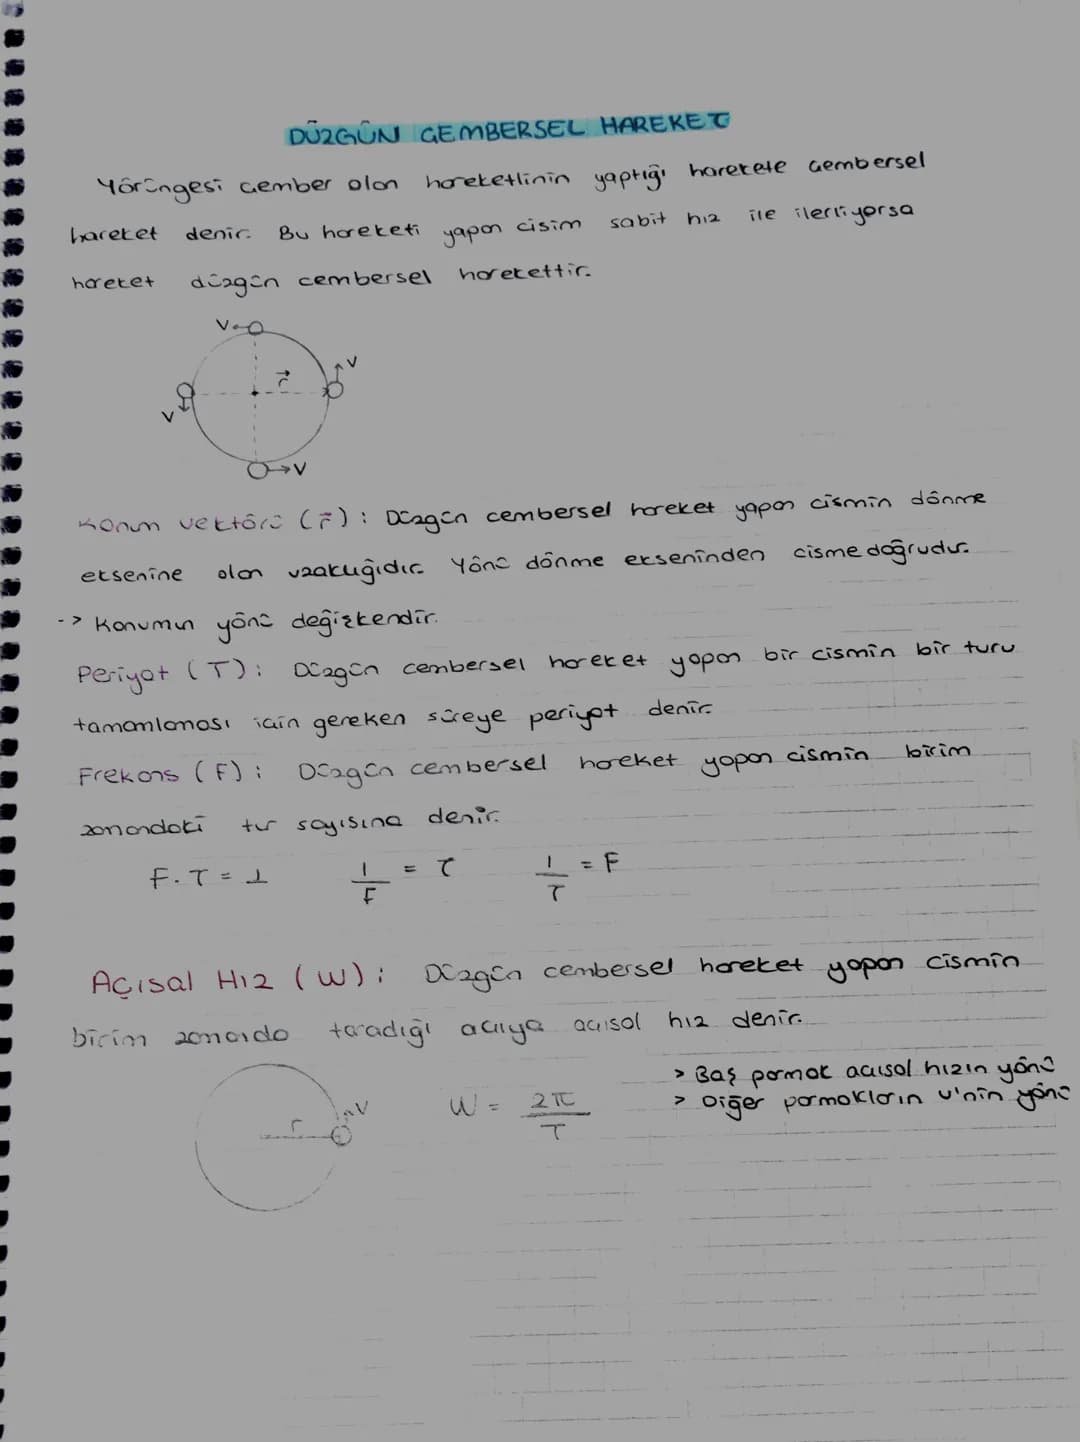 DÜZGÜN ÇEMBERSEL HAREKET
Yörüngesi çember olan hareketlinin yaptığı harekete çembersel
hareket denir. Bu hareketi yapan cisim sabit hız ile ilerliyorsa
hareket düzgün çembersel harekettir.
V
r⃗
V
V
V
Konum vektörü (r⃗): Düzgün çembersel hareket yapan cismin dönme
eksenine olan uzaklığıdır. Yönü dönme ekseninden cisme doğrudur.
-> Konumun yönü değişkendir.
Periyot (T): Düzgün çembersel hareket yapan bir cismin bir turu
tamamlaması için gereken süreye periyot denir.
Frekans (F): Düzgün çembersel hareket yapan cismin birim
zamandaki tur sayısına denir.
F.T = 1 1/F = T 1/T = F
Açısal Hız (W): Düzgün çembersel hareket yapan cismin
birim zamanda taradığı açıya açısal hız denir.
> Baş parmak açısal hızın yönü
> Diğer parmakların v'nin yönü
r V W = 2π/T